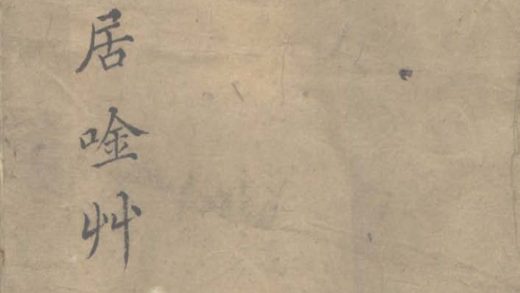 居唫艸